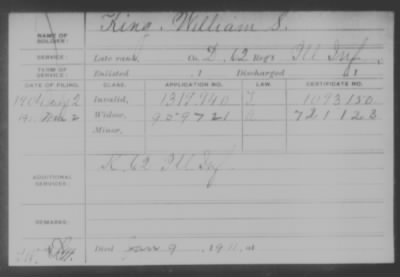 NAME OF SOLDIER: King, William S.
SERVICE: Late rank, Co. D, 62 Reg't Ill Inf
TERM OF SERVICE: Enlisted , 1 Discharged , 1
DATE OF FILING. CLASS. APPLICATION NO. LAW. CERTIFICATE NO.
1904 2 Invalid, 1319940 1093150
1911 2 Widow, 959721 721123
Minor,
ADDITIONAL SERVICES: K. 62 Ill Inf
REMARKS:
Died 9, 1911, at